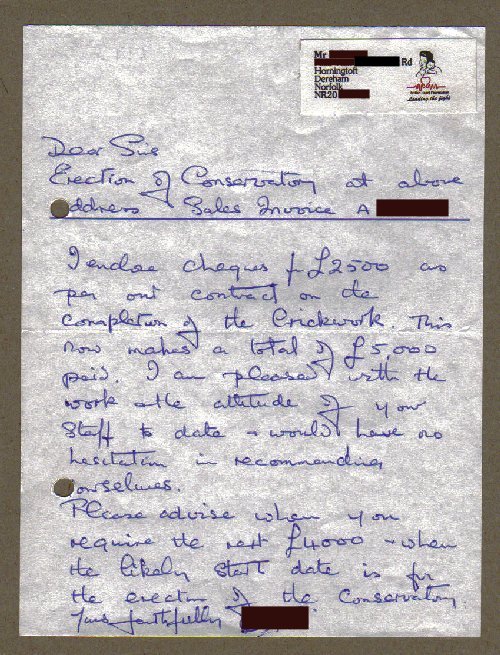 Mr
Rd
Horningtoft
Dereham
Norfolk
NR20
Leading the fight
Dear Sue
Erection of Conservatory at above
address Sales Invoice A
I enclose cheques for £2500 as
per our contract on the
completion of the brickwork. This
now makes a total of £5,000
paid. I am pleased with the
work + the attitude of your
staff to date + would have no
hesitation in recommending
yourselves.
Please advise when you
require the next £4000 + when
the likely start date is for
the erection of the Conservatory.
Yours faithfully